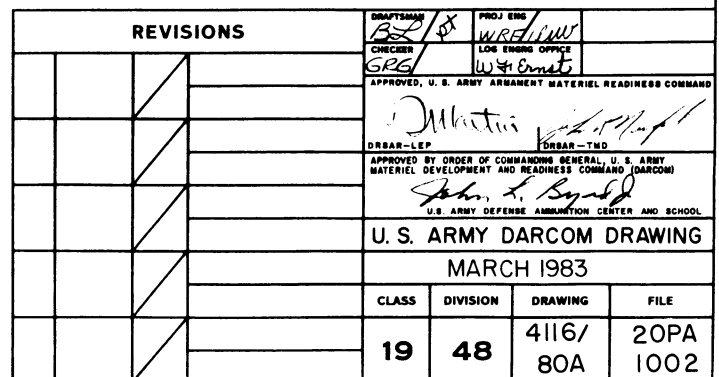 REVISIONS
DRAFTSMAN
BL
PROJ ENG
WRF
CHECKER
GRG
LOG ENGRG OFFICE
W F Ernst
APPROVED, U. S. ARMY ARMAMENT MATERIEL READINESS COMMAND
D Martin
DRSAR-LEP
DRSAR-TMD
APPROVED BY ORDER OF COMMANDING GENERAL, U. S. ARMY
MATERIEL DEVELOPMENT AND READINESS COMMAND (DARCOM)
John L. Byrd
U.S. ARMY DEFENSE AMMUNITION CENTER AND SCHOOL
U. S. ARMY DARCOM DRAWING
MARCH 1983
CLASS DIVISION DRAWING FILE
19 48 4116/ 20PA
80A 1002